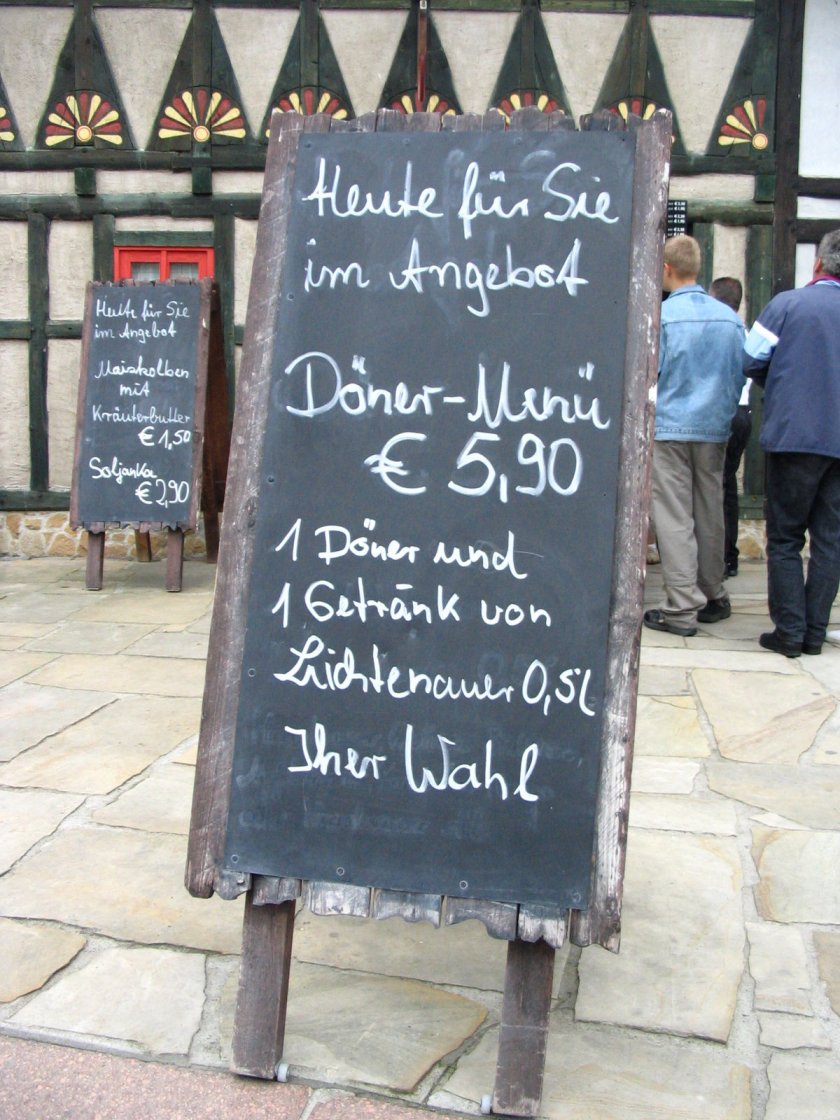 Heute für Sie
im Angebot
Döner-Menü
€ 5,90
1 Döner und
1 Getränk von
Lichtenauer 0,5l
Iher Wahl
Heute für Sie
im Angebot
Maiskolben
mit
Kräuterbutter
€ 1,50
Soljanka
€ 2,90